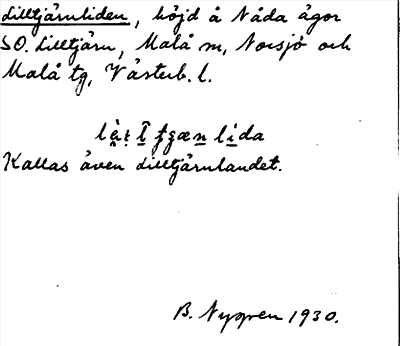 Lilltjärnliden, höjd å Nåda ägor
SO. Lilltjärn, Malå sn, Norsjö och
Malå tg, Västerb. l.
lida
Kallas även Lilltjärnlandet.
B. Nygren 1930.